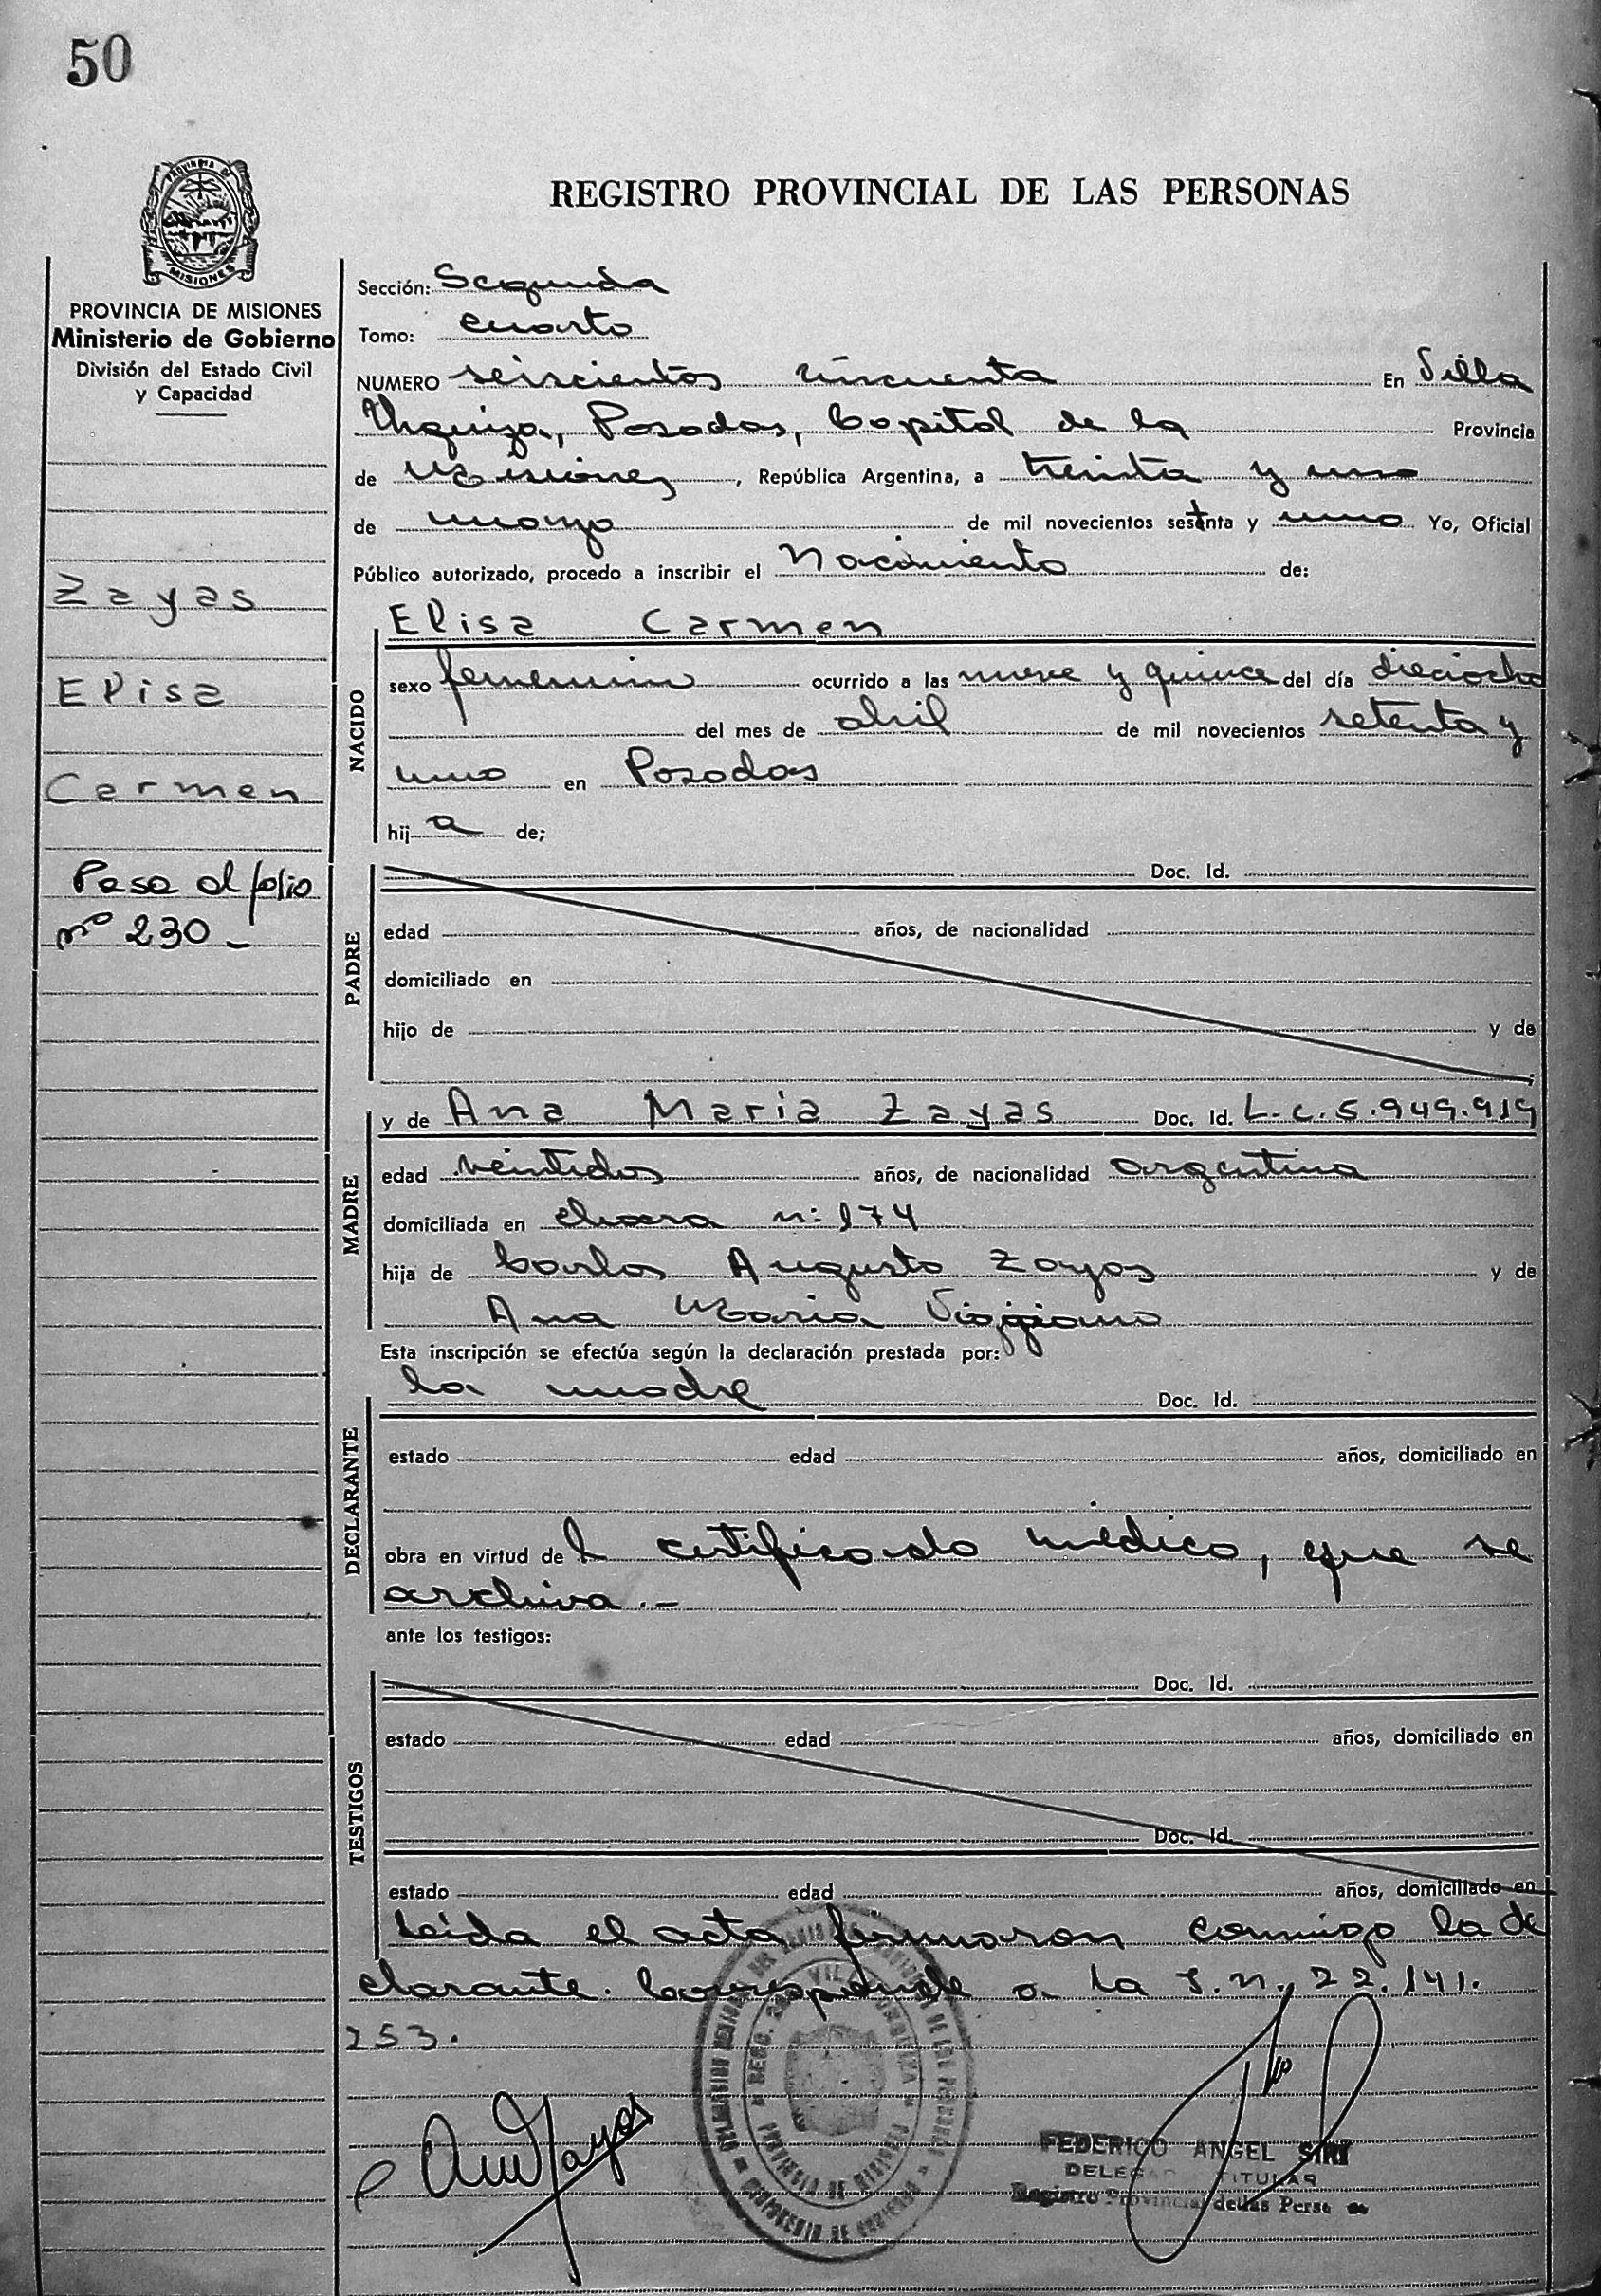 50
PROVINCIA DE
MISIONES
REGISTRO PROVINCIAL DE LAS PERSONAS
PROVINCIA DE MISIONES
Ministerio de Gobierno
División del Estado Civil
y Capacidad
Zayas
Elisa
Carmen
Pasa al folio
nº 230 -
Sección: Segunda
Tomo: cuarto
NUMERO seiscientos cincuenta En Villa
Urquiza, Posadas, Capital de la Provincia
de Misiones, República Argentina, a treinta y uno
de marzo de mil novecientos setenta y uno Yo, Oficial
Público autorizado, procedo a inscribir el Nacimiento de:
NACIDO
Elisa Carmen
sexo femenino ocurrido a las nueve y quince del día dieciocho
del mes de abril de mil novecientos setenta y
uno en Posadas
hija de;
PADRE
Doc. Id.
edad años, de nacionalidad
domiciliado en
hijo de y de
MADRE
y de Ana Maria Zayas Doc. Id. L.C. 5.949.919
edad veintidos años, de nacionalidad argentina
domiciliada en chacra n: 174
hija de Carlos Augusto Zayas y de
Ana Maria Viggiano
Esta inscripción se efectúa según la declaración prestada por:
DECLARANTE
la madre Doc. Id.
estado edad años, domiciliado en
obra en virtud del certificado médico, que se
archiva.-
ante los testigos:
TESTIGOS
Doc. Id.
estado edad años, domiciliado en
Doc. Id.
estado edad años, domiciliado en
Leida el acta firmaron conmigo la de
clarante. Corresponde a la I.N. 22.141.
253.
Ana Zayas
SECC. 2da VILLA URQUIZA
PROVINCIA DE MISIONES
MINISTERIO DE GOBIERNO
FEDERICO ANGEL SIRI
DELEGADO TITULAR
Registro Provincial de las Perso